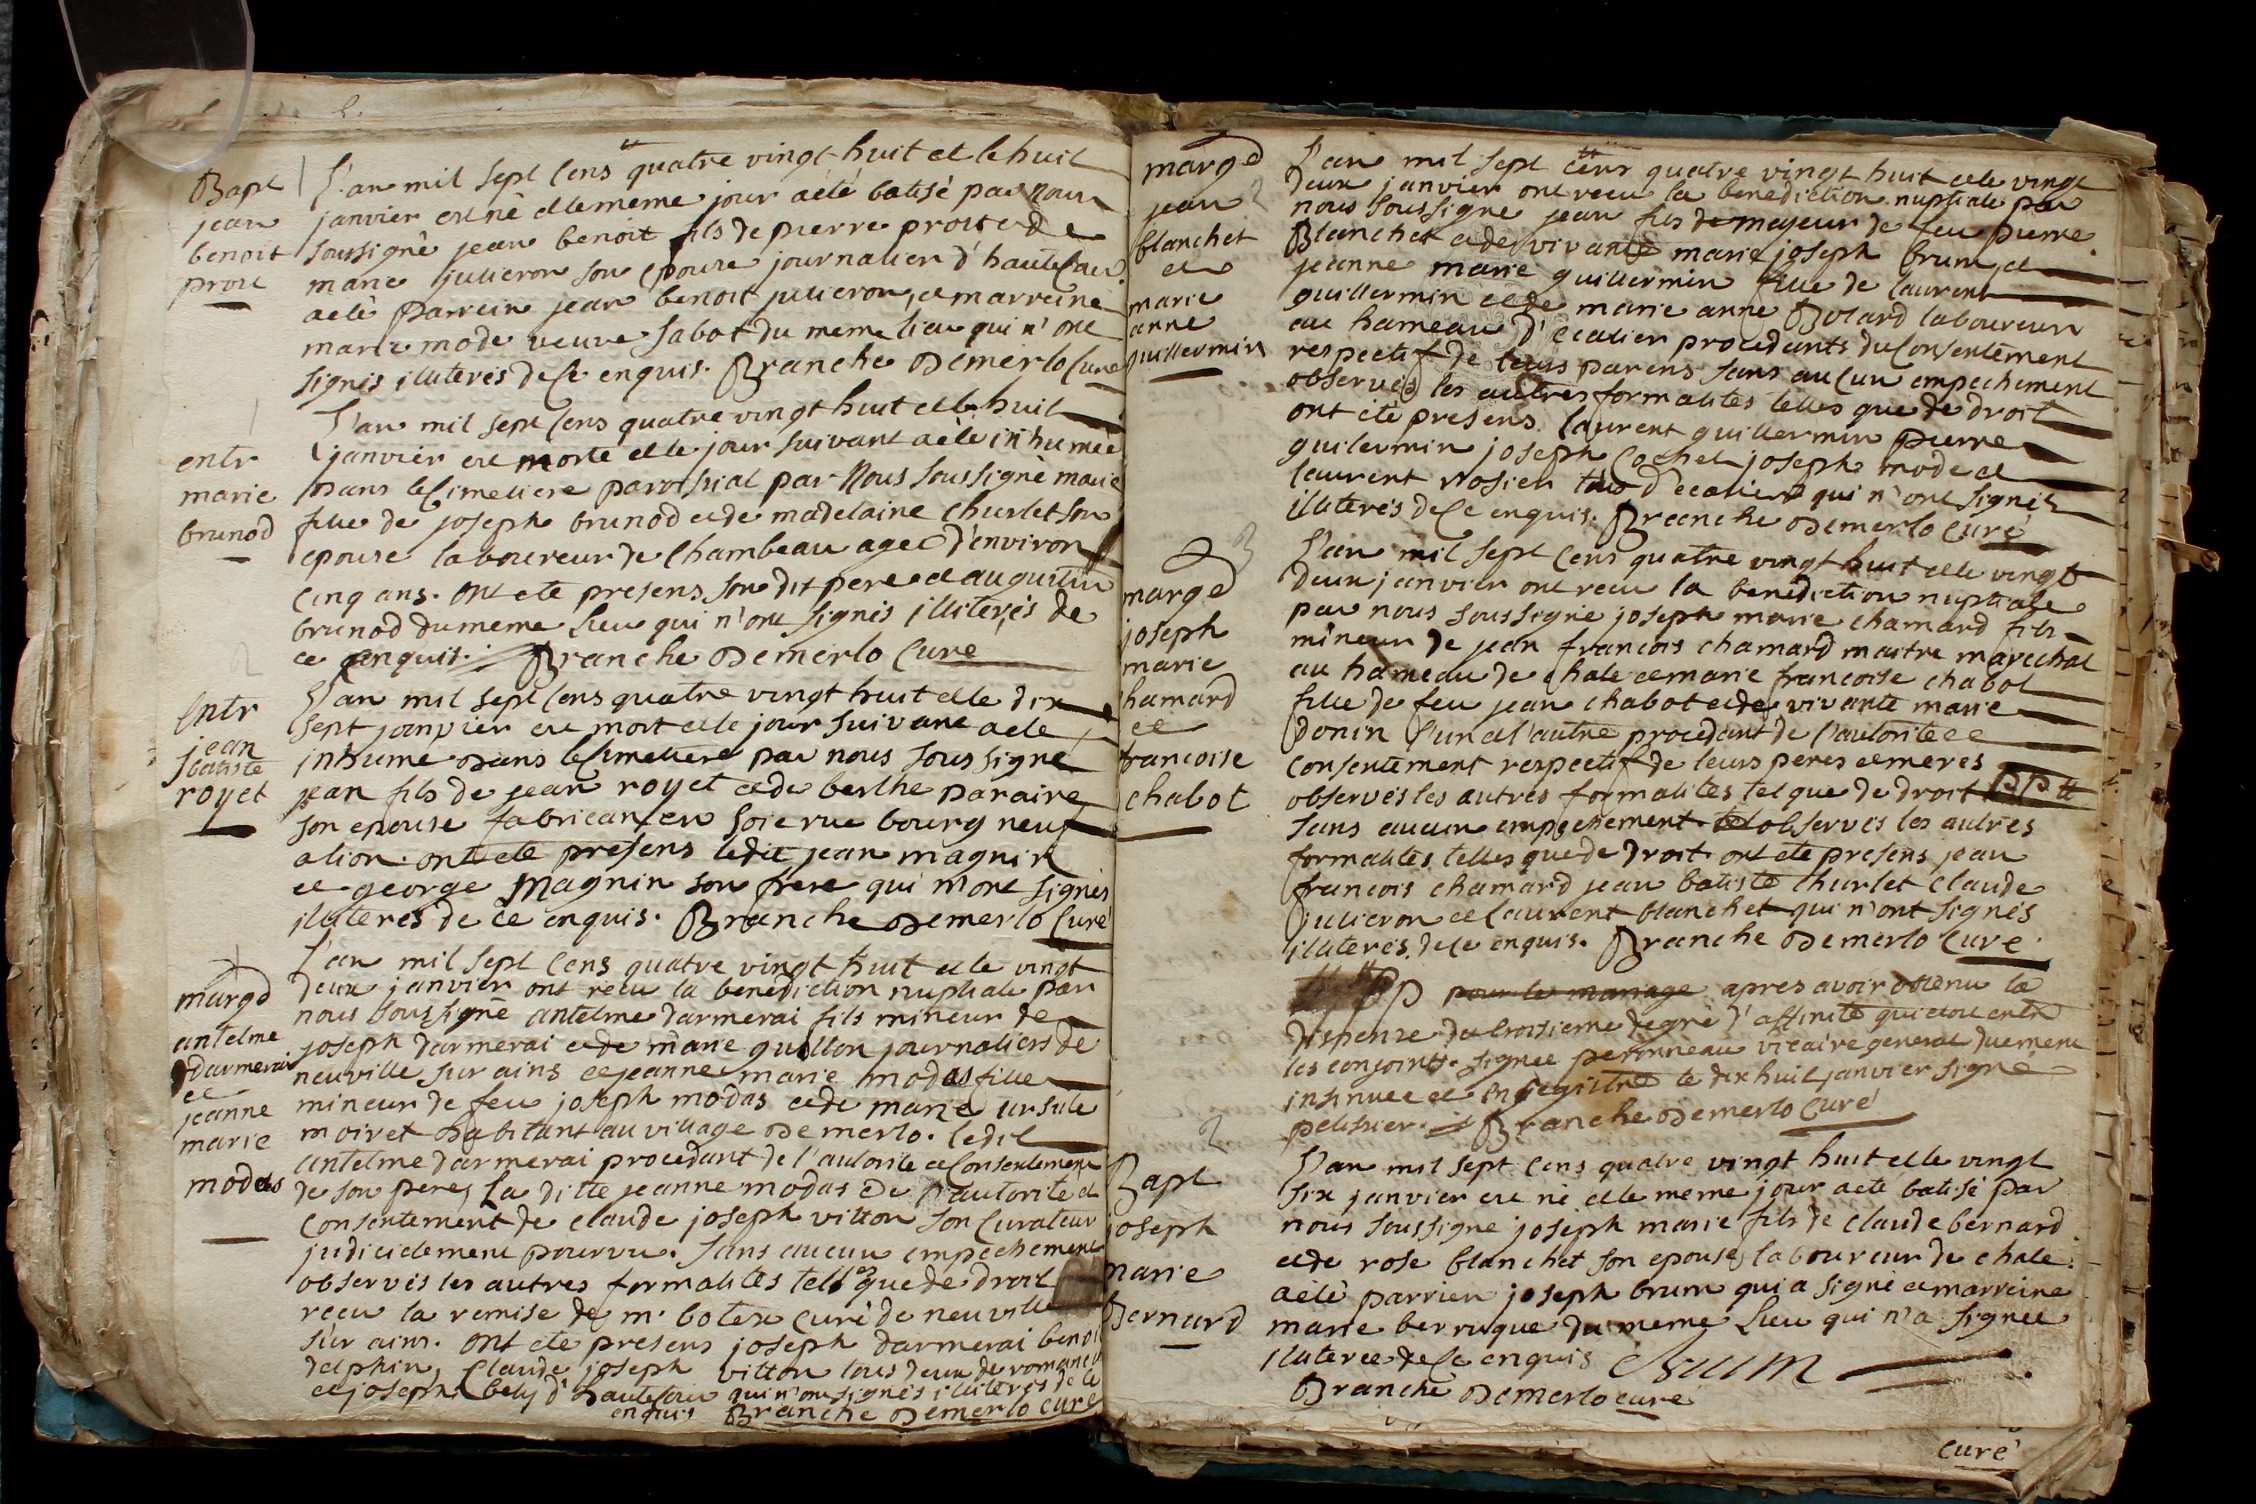 Bapt
jean
benoit
prost
L'an mil sept cens quatre vingt huit et le huit
janvier est né et le meme jour a été batisé par nous
soussigné jean benoit fils de pierre prost et de
marie julieron son epouse journalier d'hautecour
a été parrein jean benoit julieron, et marreine
marie mode veuve sabot du meme lieu qui n'ont
signés illiterés de ce enquis. Branche Demerlo Curé
entr
marie
brunod
L'an mil sept cens quatre vingt huit et le huit
janvier est morte et le jour suivant a été inhumée
dans le cimetiere paroissial par Nous soussigné marie
fille de joseph brunod et de madelaine churlet son
epouse laboureur de Chambeau agée d'environ
cinq ans. ont ete presens son dit pere et augustin
brunod du meme lieu qui n'ont signés illiterés de
ce enquis. Branche Demerlo Cure
Entr
jean
batiste
royet
L'an mil sept cens quatre vingt huit et le dix
sept janvier est mort et le jour suivant a ete
inhumé dans le cimetiere par nous soussigné
jean fils de jean royet et de berthe paraire
son epouse fabricant en soie rue bourg neuf
a lion. ont ete presens ledit jean magnin
et george magnin son frere qui n'ont signés
illiteres de ce enquis. Branche Demerlo Curé
marg d
antelme
darmerai
et
jeanne
marie
modas
L'an mil sept cens quatre vingt huit et le vingt
deux janvier ont recu la benediction nuptiale par
nous soussigné antelme darmerai fils mineur de
joseph darmerai et de marie guitton journaliers de
neuville sur ains et jeanne marie modas fille
mineur de feu joseph modas et de marie ursule
moiret habitant au village Demerlo. ledit
antelme darmerai procedant de l'autorité et consentement
de son pere, La ditte jeanne modas de l'autorité et
consentement de claude joseph vitton son curateur
judicielement pourvu. sans aucun empechement
observés les autres formalités telles que de droit
recu la remise de mr. botex curé de neuville
sur ains. ont ete presens joseph darmerai benoit
delphin, claude joseph vitton tous deux de romaneche
et joseph bely d'hautecour qui n'ont signés illiterés de ce
enquis Branche Demerlo curé
marg d
jean
blanchet
et
marie
anne
guillermin
L'an mil sept cens quatre vingt huit et le vingt
deux janvier ont recu la benediction nuptiale par
nous soussigné jean fils de mayeur de feu pierre
Blanchet et de vivante marie joseph brun, et
jeanne marie guillermin fille de laurent
guillermin et de marie anne Borard laboureurs
au hameau d'ecalier procedants du consentement
respectif de leurs parens sans aucun empechement
observés les autres formalités telles que de droit
ont été presens laurent guillermin pierre
guilermin joseph Cochet joseph mode et
laurent rosier tous d'ecalier qui n'ont signés
illiterés de ce enquis. Branche Demerlo Curé
marg d
joseph
marie
chamard
et
francoise
chabot
L'an mil sept cens quatre vingt huit et le vingt
deux janvier ont recu la benediction nuptiale
par nous soussigné joseph marie chamard fils
mineur de jean francois chamard maitre marechal
au hameau de chale et marie francoise chabot
fille de feu jean chabot et de vivante marie
donin l'un et l'autre procedant de l'autorité et
consentement respectif de leurs peres et meres
observés les autres formalités tel que de droit pp tt
sans aucun empechement et observés les autres
formalités telles que de droit ont ete presens jean
francois chamard jean batiste churlet claude
julieron et laurent blanchet qui n'ont signés
illiterés de ce enquis. Branche Demerlo Cure
pp pour le mariage apres avoir obtenu la
dispense du troisieme degré d'affinité qui etoit entre
les conjoints. signée peronneau vicaire general duement
insinuée et enregistrée le dix huit janvier signé
pelissier. Branche Demerlo Curé
Bapt
joseph
marie
Bernard
L'an mil sept cens quatre vingt huit et le vingt
six janvier est né et le meme jour a eté batisé par
nous soussigné joseph marie fils de claude bernard
et de rose blanchet son epouse, laboureur de chale.
a été parrien joseph brun qui a signé et marreine
marie berruque du meme lieu qui n'a signée
illiteree de ce enquis Brun
Branche Demerlo curé
curé